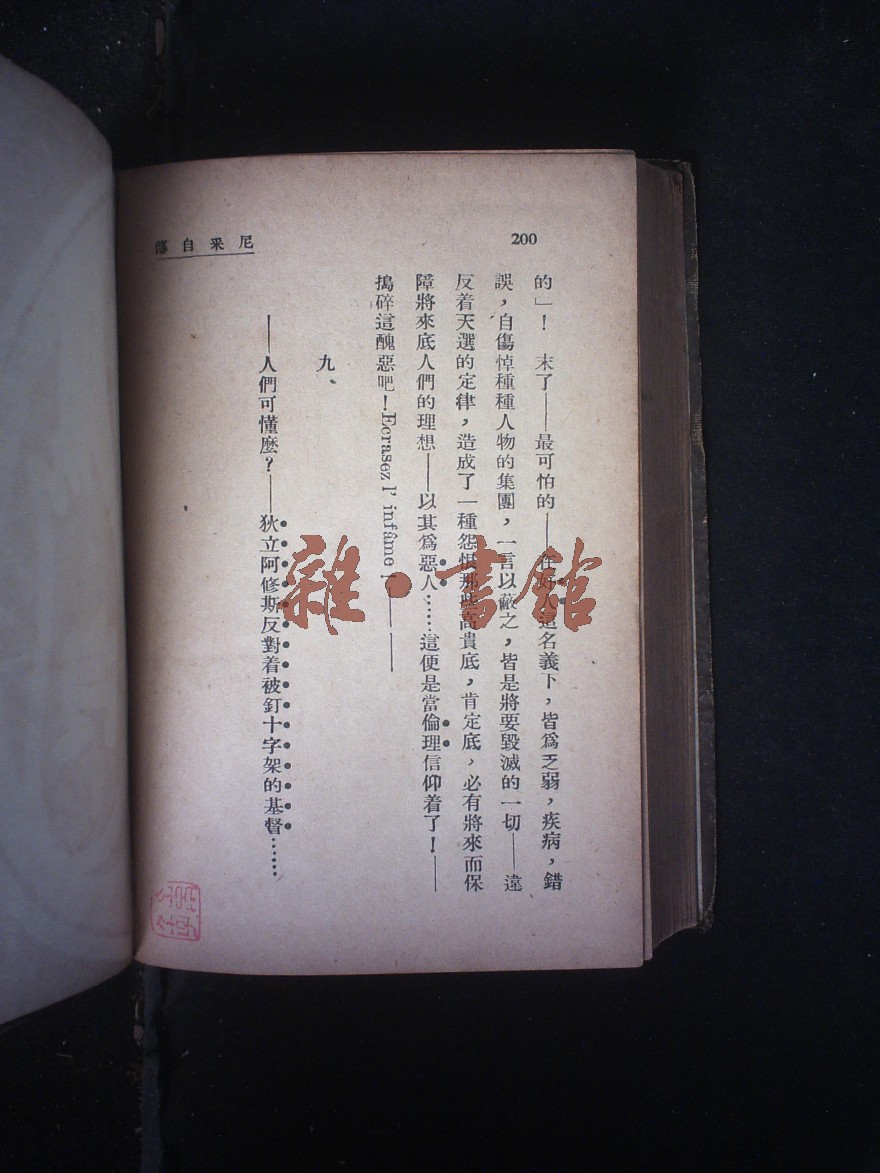 200
尼采自傳
的」！　末了——最可怕的——在好人這名義下，皆爲乏弱，疾病，錯
誤，自傷悼種種人物的集團，一言以蔽之，皆是將要毀滅的一切——違
反着天選的定律，造成了一種怨恨那些高貴底，肯定底，必有將來而保
障將來底人們的理想——以其爲惡人……這便是當倫理信仰着了！——
搗碎這醜惡吧！Ecrasez l' infâme！———
九、
——人們可懂麽？——狄立阿修斯反對着被釘十字架的基督……
雜·書館